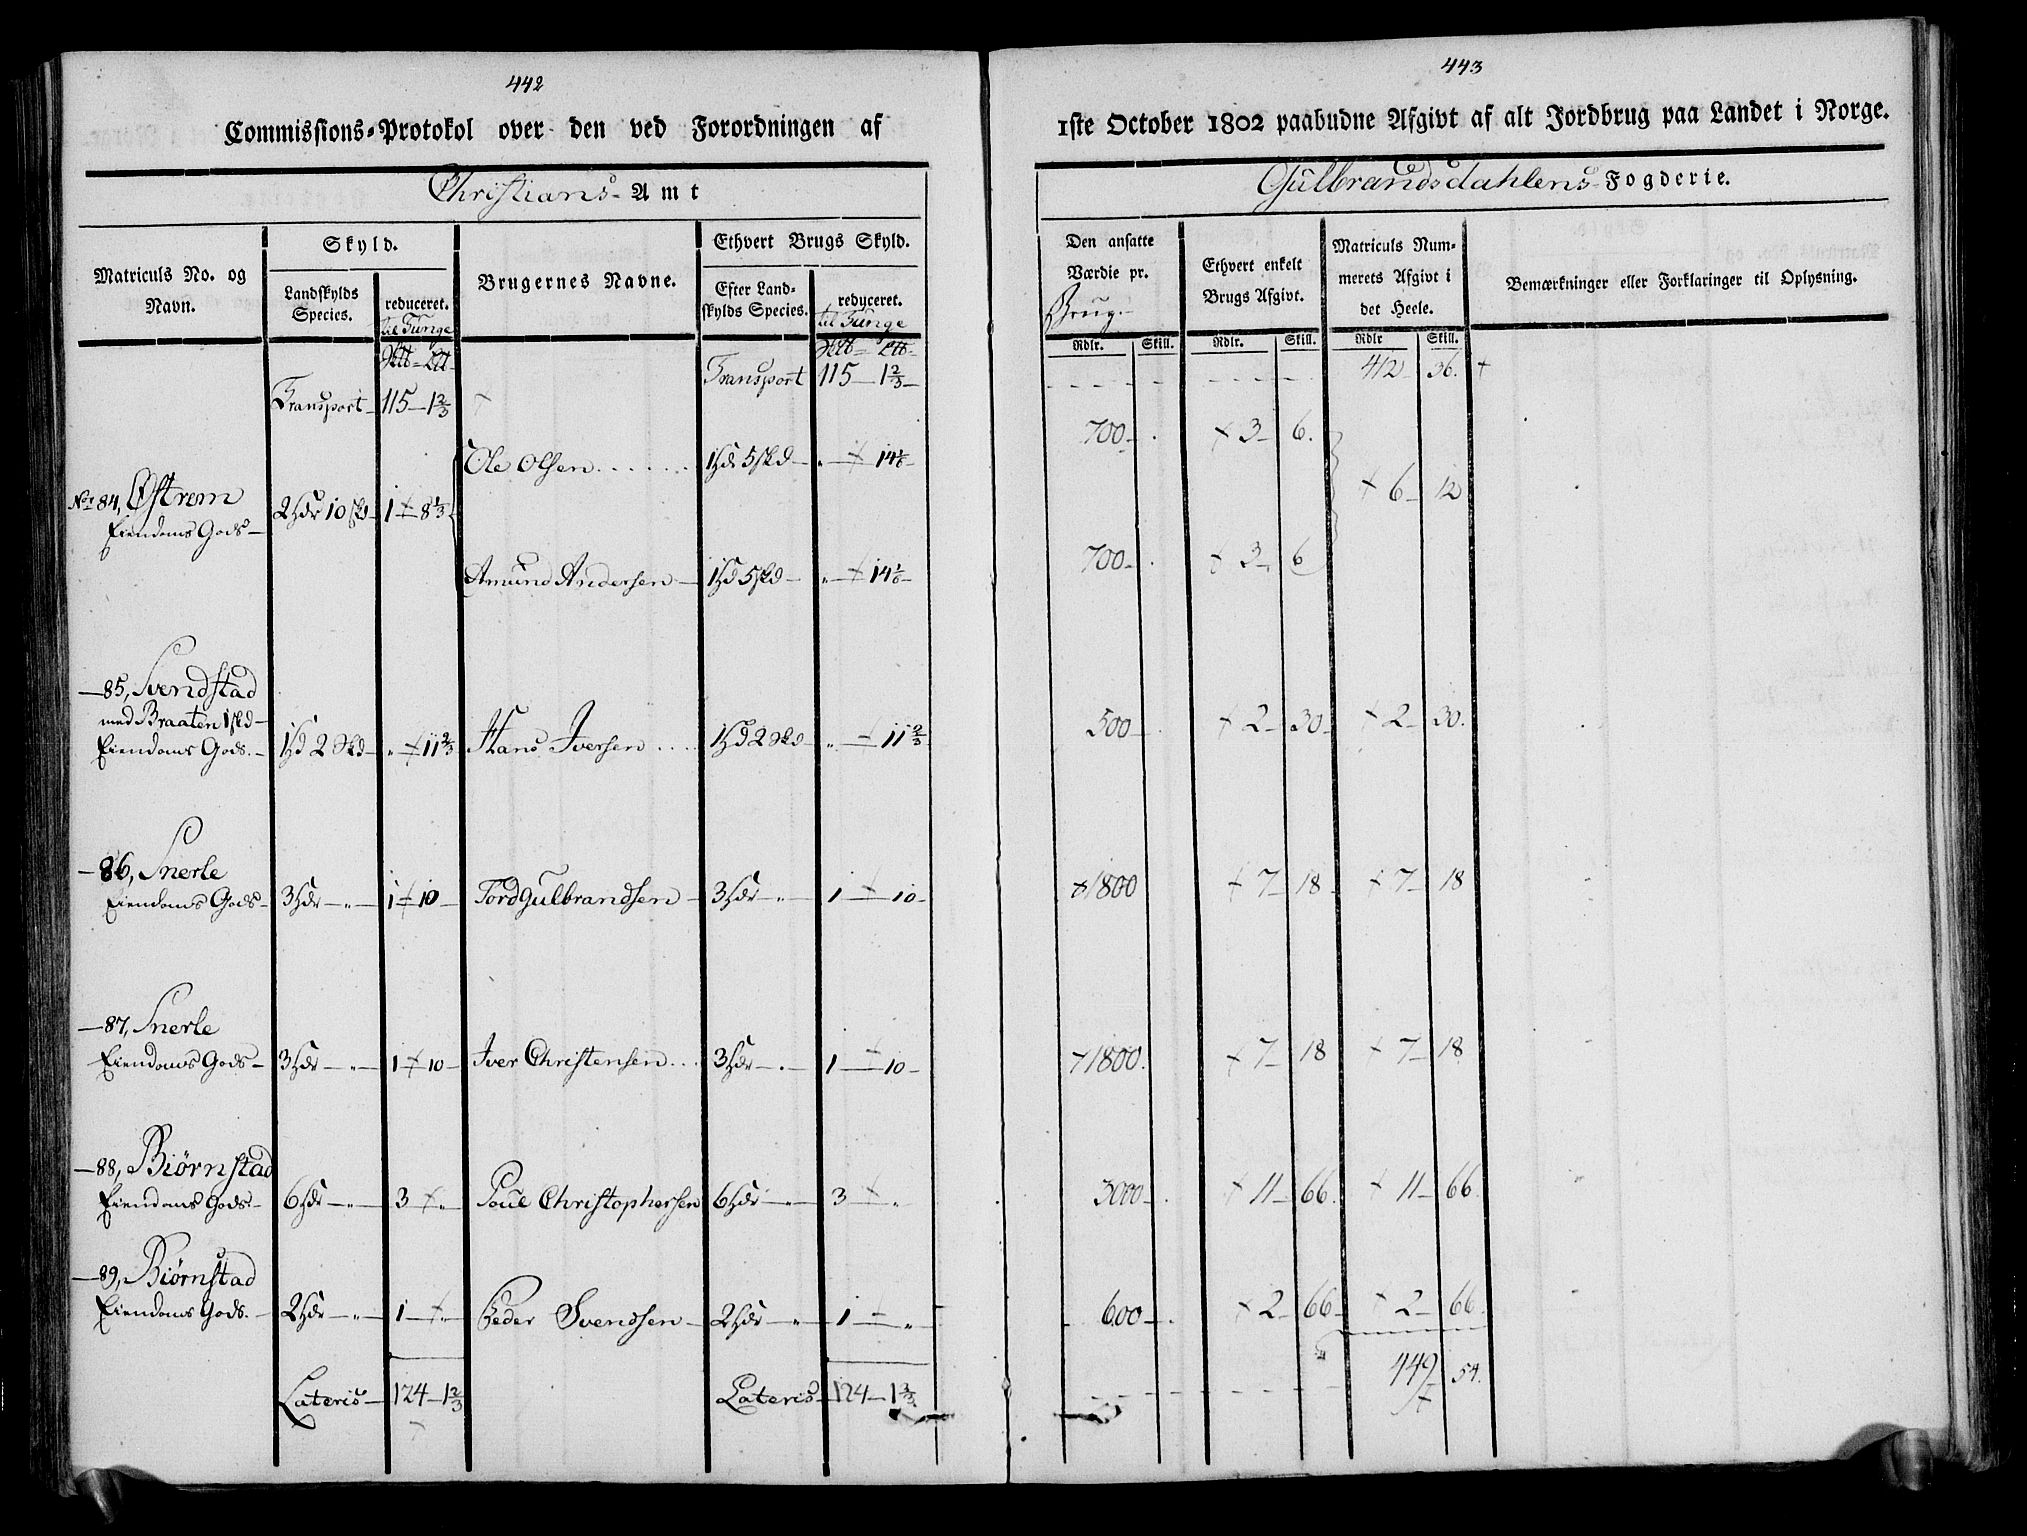 442
Commissions-Protokol over den ved Forordningen af
Christians- Amt
Matriculs No. og Navn.
Skyld.
Landskylds Species.
reduceret.
til Tunge
Brugernes Navne.
Ethvert Brugs Skyld.
Efter Landskylds Species.
reduceret.
til Tunge
Transport 115 — 1 2/3 —
Transport — 115 — 1 2/3
Ole Olsen . . . . . . 1 Hd 5 skd — „ — 14 1/6 —
No 84, Østrem 2 Hdr 10 skd — 1 — 8 1/3
Eiendoms Gods —
Amund Andersen — 1 Hd 5 skd — „ — 14 1/6 —
— 85, Svendstad
med Braaten 1 skd —
Eiendoms Gods. — 1 Hd 2 Skd — „ — 11 2/3 Hans Iversen . . . . 1 Hd 2 Skd — „ — 11 2/3
— 86, Snerle
Eiendoms Gods — 3 Hdr — „ — 1 — 10 — Tord Gulbrandsen — 3 Hdr — „ — 1 — 10 —
— 87, Snerle
Eiendoms Gods — 3 Hdr — „ — 1 — 10 — Iver Christensen . . . 3 Hdr — „ — 1 — 10 —
— 88, Biørnstad
Eiendoms Gods — 6 Hdr — „ — 3 — „ — Poul Christophersen 6 Hdr — „ — 3 — „
— 89, Biørnstad
Eiendoms Gods. — 2 Hdr — „ — 1 — „ — Peder Svendsen — 2 Hdr — „ — 1 — „
Lateris — 124 — 1 2/3 Lateris — 124 — 1 2/3
443
1ste October 1802 paabudne Afgivt af alt Jordbrug paa Landet i Norge.
Gulbrandsdahlens Fogderie.
Den ansatte Værdie pr.
Brug.
Ethvert enkelt Brugs Afgivt.
Matriculs Nummerets Afgivt i det Heele.
Bemærkninger eller Forklaringer til Oplysning.
Rdlr. Skill. Rdlr. Skill. Rdlr Skill.
412 36. +
700 — . + 3 — 6.
+ 6 — 12
700 — . + 3 — 6
500 — . + 2 — 30 — + 2 — 30.
+ 1800 + 7 — 18 — + 7 — 18
+ 1800. + 7 — 18 + 7 — 18
3000 — . + 11 — 66. + 11 — 66.
600 — . + 2 — 66 — + 2 — 66.
449 54.